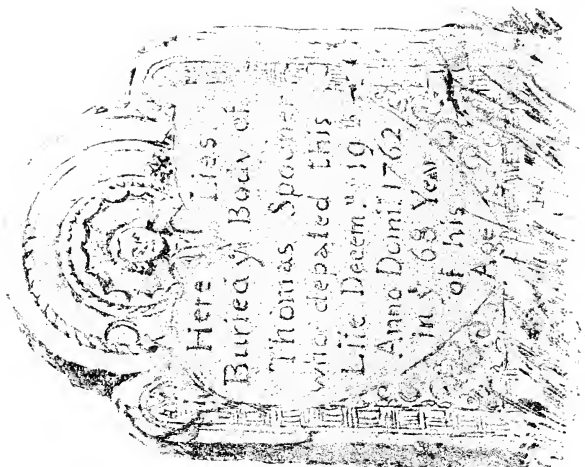 Here Lies
Buried yᵉ Body of
Thomas Spooner
who depated this
Life Decemʳ 19ᵗʰ
Anno Domi: 1762
in yᵉ 69 Year
of his
Age